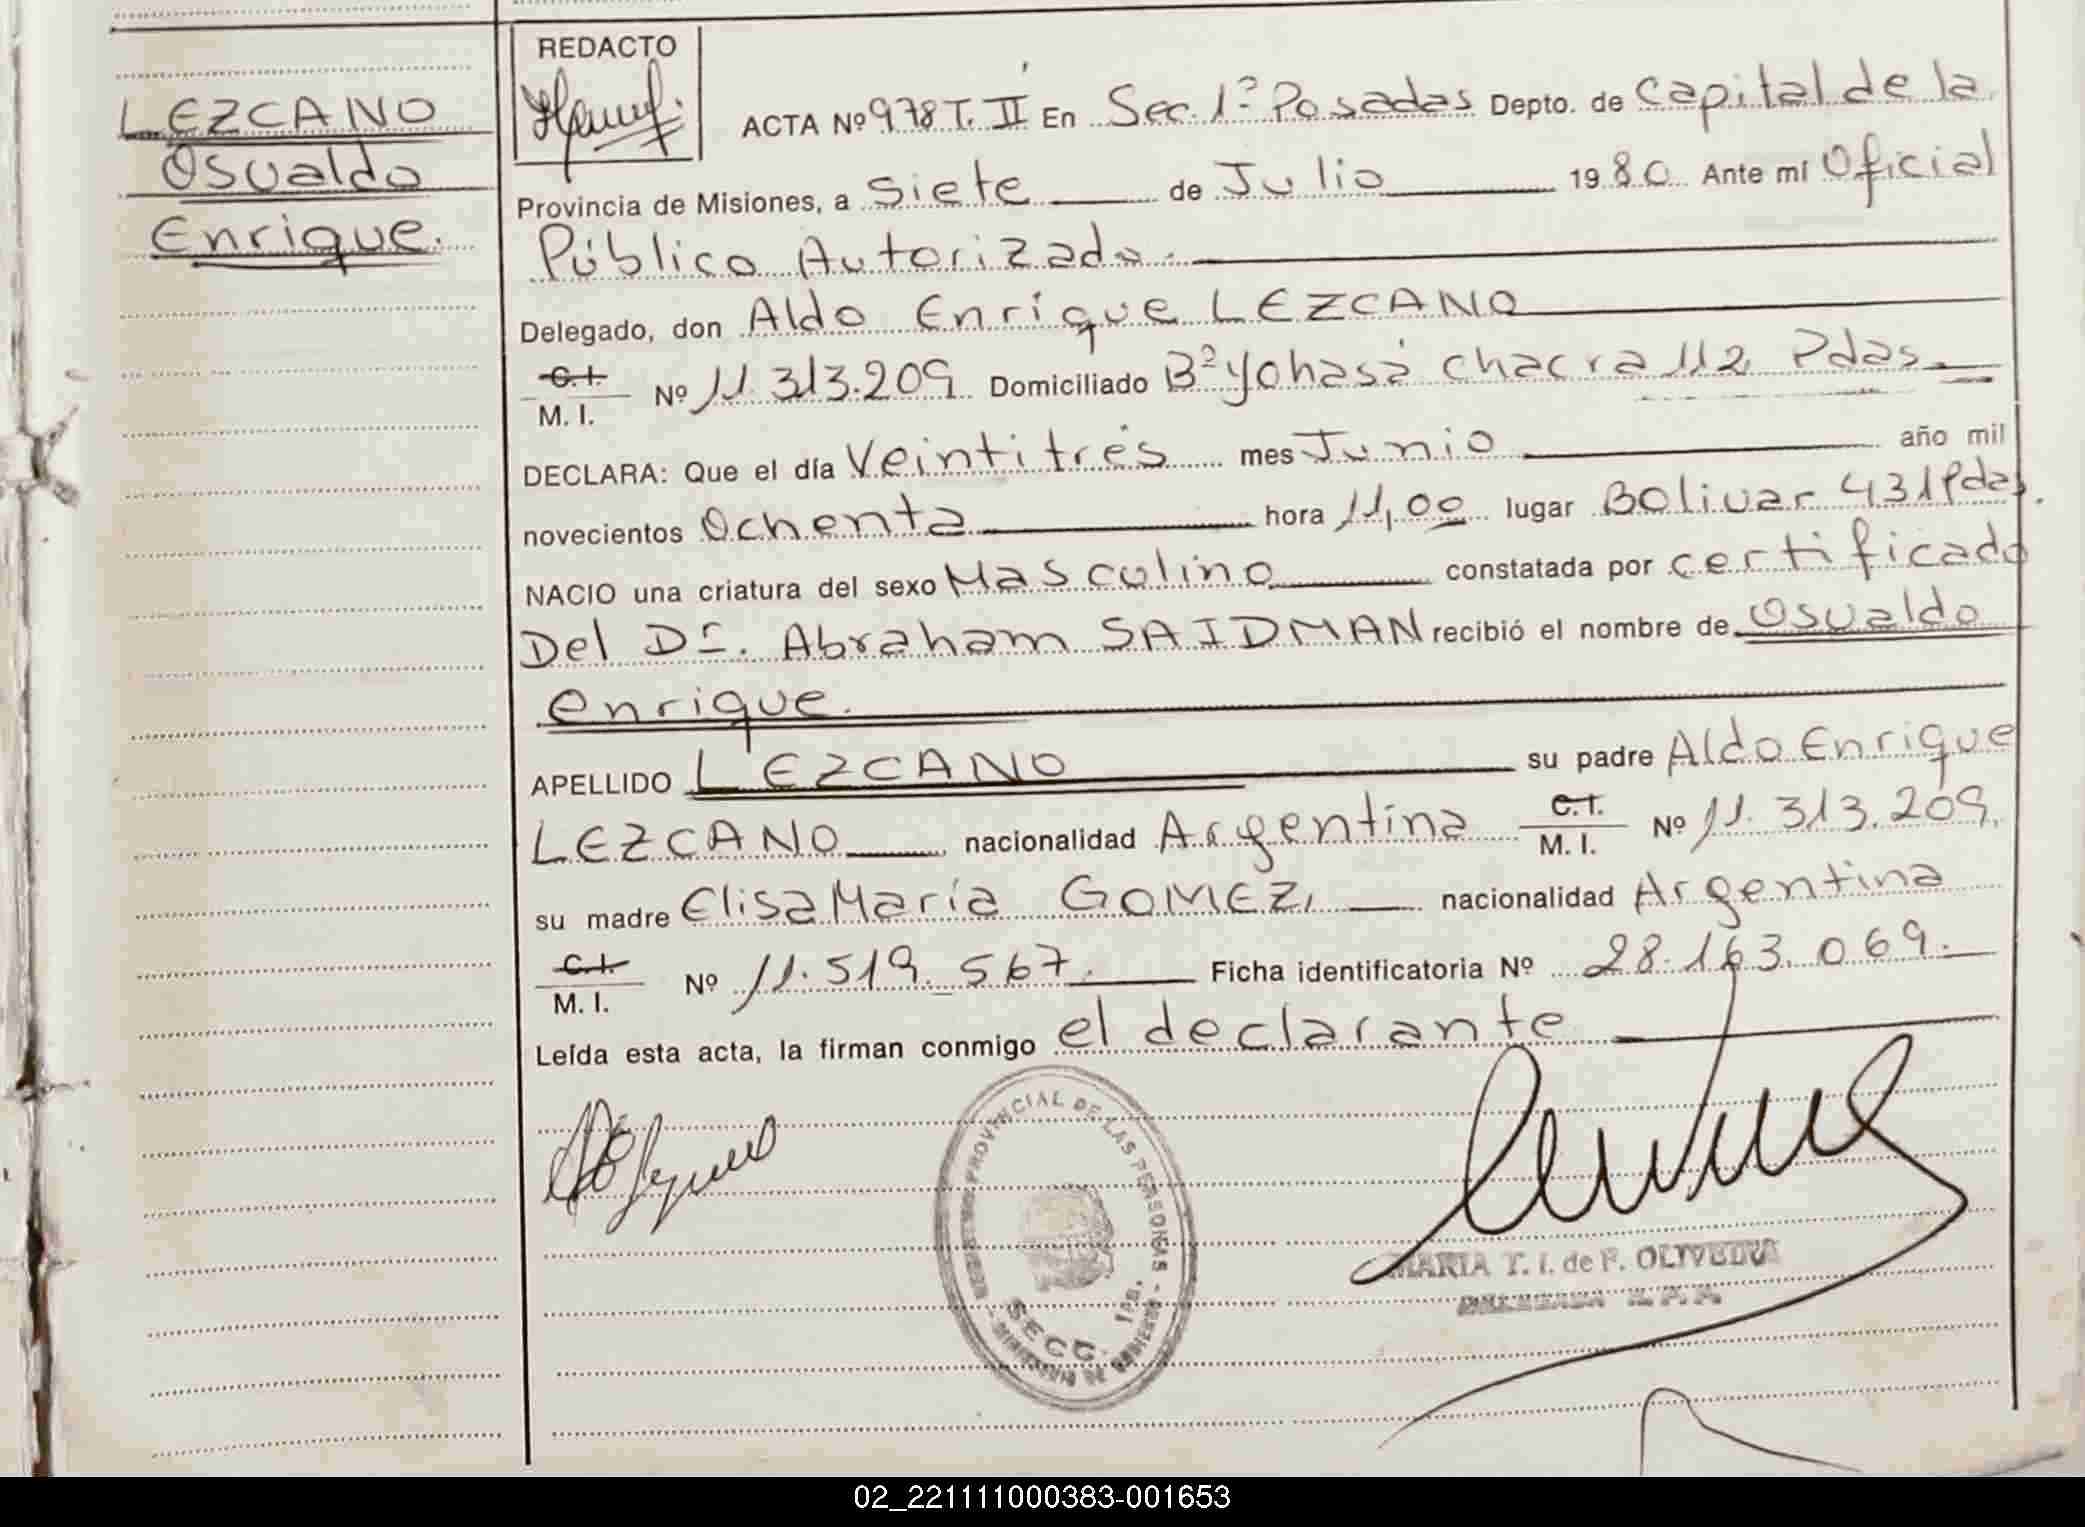 LEZCANO
Osvaldo
Enrique.
REDACTO
ACTA Nº 978 T. II En Sec. 1ª Posadas Depto. de Capital de la
Provincia de Misiones, a Siete de Julio 1980 Ante mí Oficial
Público Autorizado.
Delegado, don Aldo Enrique LEZCANO
C.I.
M. I. Nº 11.313.209 Domiciliado Bº Yohasá chacra 112 Pdas.
DECLARA: Que el día Veintitrés mes Junio año mil
novecientos Ochenta hora 11,00 lugar Bolivar 431 Pdas.
NACIO una criatura del sexo Masculino constatada por certificado
Del Dr. Abraham SAIDMAN recibió el nombre de Osvaldo
Enrique.
APELLIDO LEZCANO su padre Aldo Enrique
LEZCANO nacionalidad Argentina C.I. M. I. Nº 11.313.209.
su madre Elisa María GOMEZ, nacionalidad Argentina
C.I.
M. I. Nº 11.519.567. Ficha identificatoria Nº 28.163.069.
Leída esta acta, la firman conmigo el declarante
PROVINCIAL DE LAS PERSONAS - MINISTERIO DE GOBIERNO
SECC. 1RA.
MARIA T. I. de F. OLIVEIRA
DELEGADA R. P. P.
02_221111000383-001653